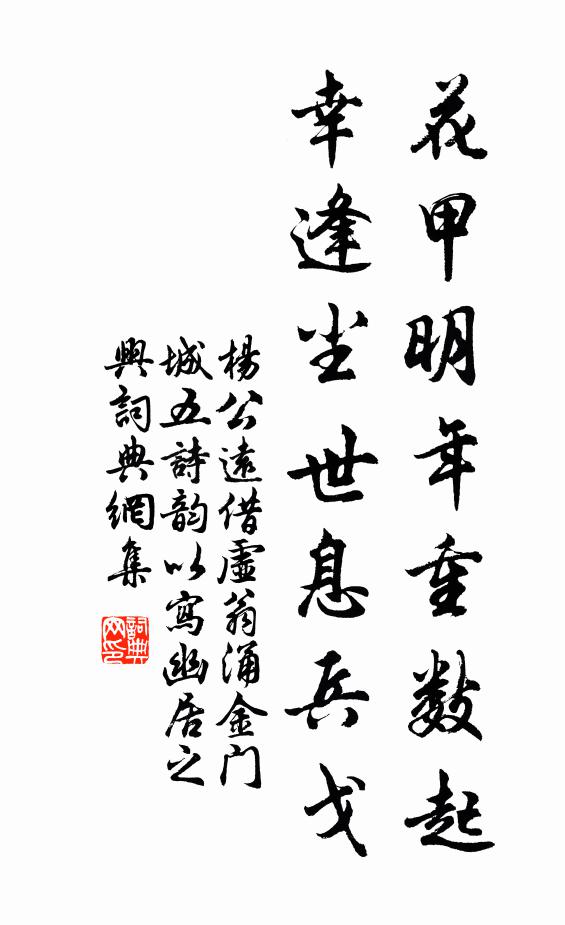 花甲明年重數起
幸逢尘世息兵戈
楊公遠借虛翁涌金門
城五詩韵以寫幽居之
興詞典網集
詞典
网印